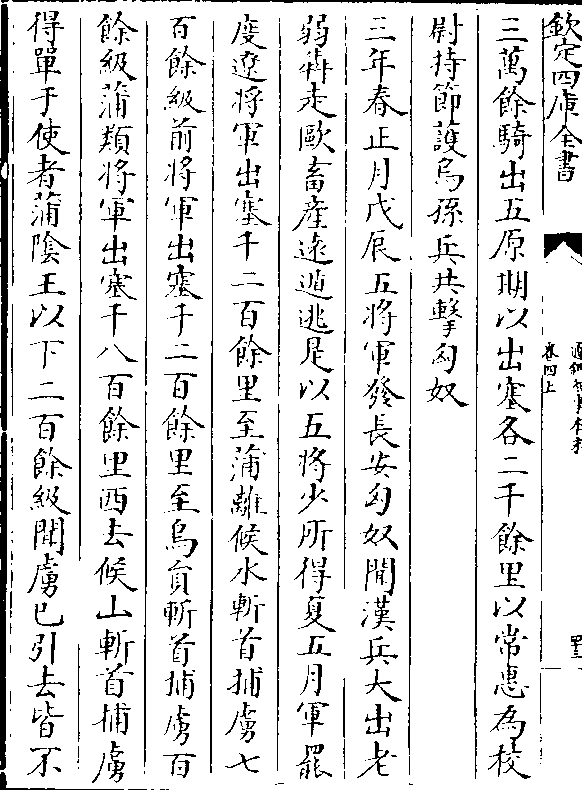 欽定四庫全書
卷四上
三萬餘騎出五原期以出塞各二千餘里以常惠為校
尉持節護烏孫兵共擊匈奴
三年春正月戊辰五將軍發長安匈奴聞漢兵大出老
弱犇走敺畜產遠遁逃是以五將少所得夏五月軍罷
度遼將軍出塞千二百餘里至蒲離候水斬首捕虜七
百餘級前將軍出塞千二百餘里至烏貟斬首捕虜百
餘級蒲類將軍出塞千八百餘里西去候山斬首捕虜
得單于使者蒲隂王以下二百餘級聞虜已引去皆不